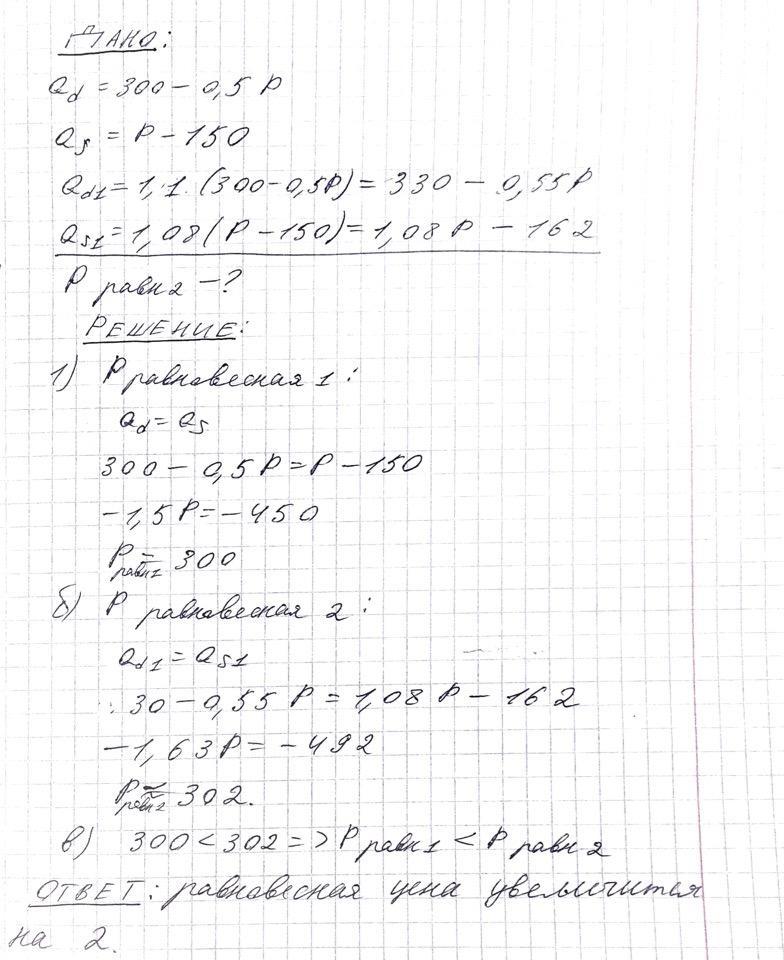 ДАНО:
Qd = 300 - 0,5 P
Qs = P - 150
Qd1 = 1,1. (300 - 0,5P) = 330 - 0,55P
Qs1 = 1,08 (P - 150) = 1,08 P - 162
P равн2 - ?
РЕШЕНИЕ:
1) P равновесная 1 :
Qd = Qs
300 - 0,5 P = P - 150
-1,5 P = - 450
P равн1 = 300
б) P равновесная 2 :
Qd1 = Qs1
30 - 0,55 P = 1,08 P - 162
- 1,63 P = - 492
P равн2 ≈ 302.
в) 300 < 302 => P равн1 < P равн2
ОТВЕТ: равновесная цена увеличится
на 2.